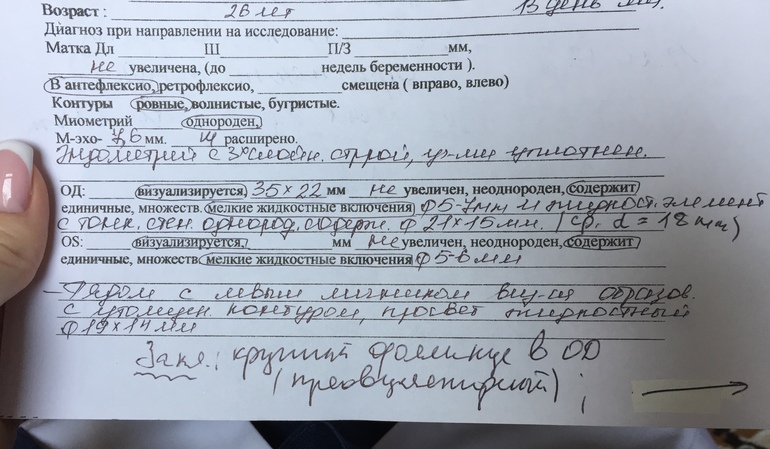 Возраст : 26 лет 13 день м.ц.
Диагноз при направлении на исследование:
Матка Дл Ш П/З мм,
не увеличена, (до недель беременности ).
В антефлексио, ретрофлексио, смещена ( вправо, влево)
Контуры ровные, волнистые, бугристые.
Миометрий однороден,
М-эхо- 7,6 мм. н расширено.
Эндометрий с 3хслойн. строй, ур-ми уплотнен.
ОД: визуализируется, 35 x 22 мм не увеличен, неоднороден, содержит
единичные, множеств. мелкие жидкостные включения ф 5-7мм и жидкост. элемент
с тонк. стен. однород. содерж. ф 21x15мм. (ср. d = 18 мм)
OS: визуализируется, мм не увеличен, неоднороден, содержит
единичные, множеств мелкие жидкостные включения ф 5-6 мм
Рядом с левым яичником виз-ся образов.
с утолщен. контуром, просвет жидкостный
ф 19 x 14 мм
Закл.: крупный фолликул в ОД
(преовуляторный) ;